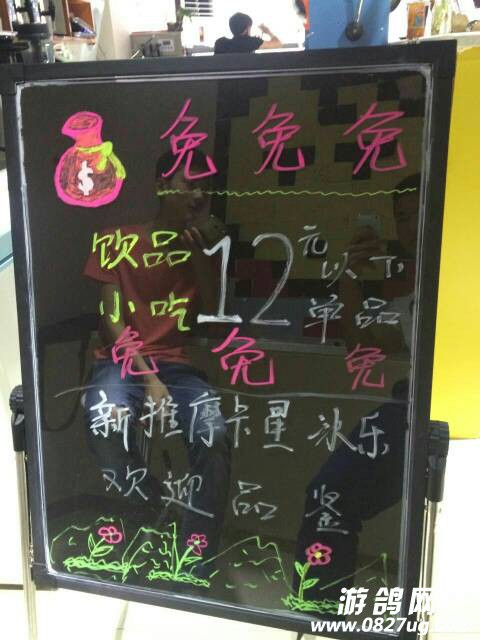 免免免
饮品 12元以下
小吃 单品
免免免
新推摩卡星冰乐
欢迎品鉴
$
游鸽网
www.0827ug.